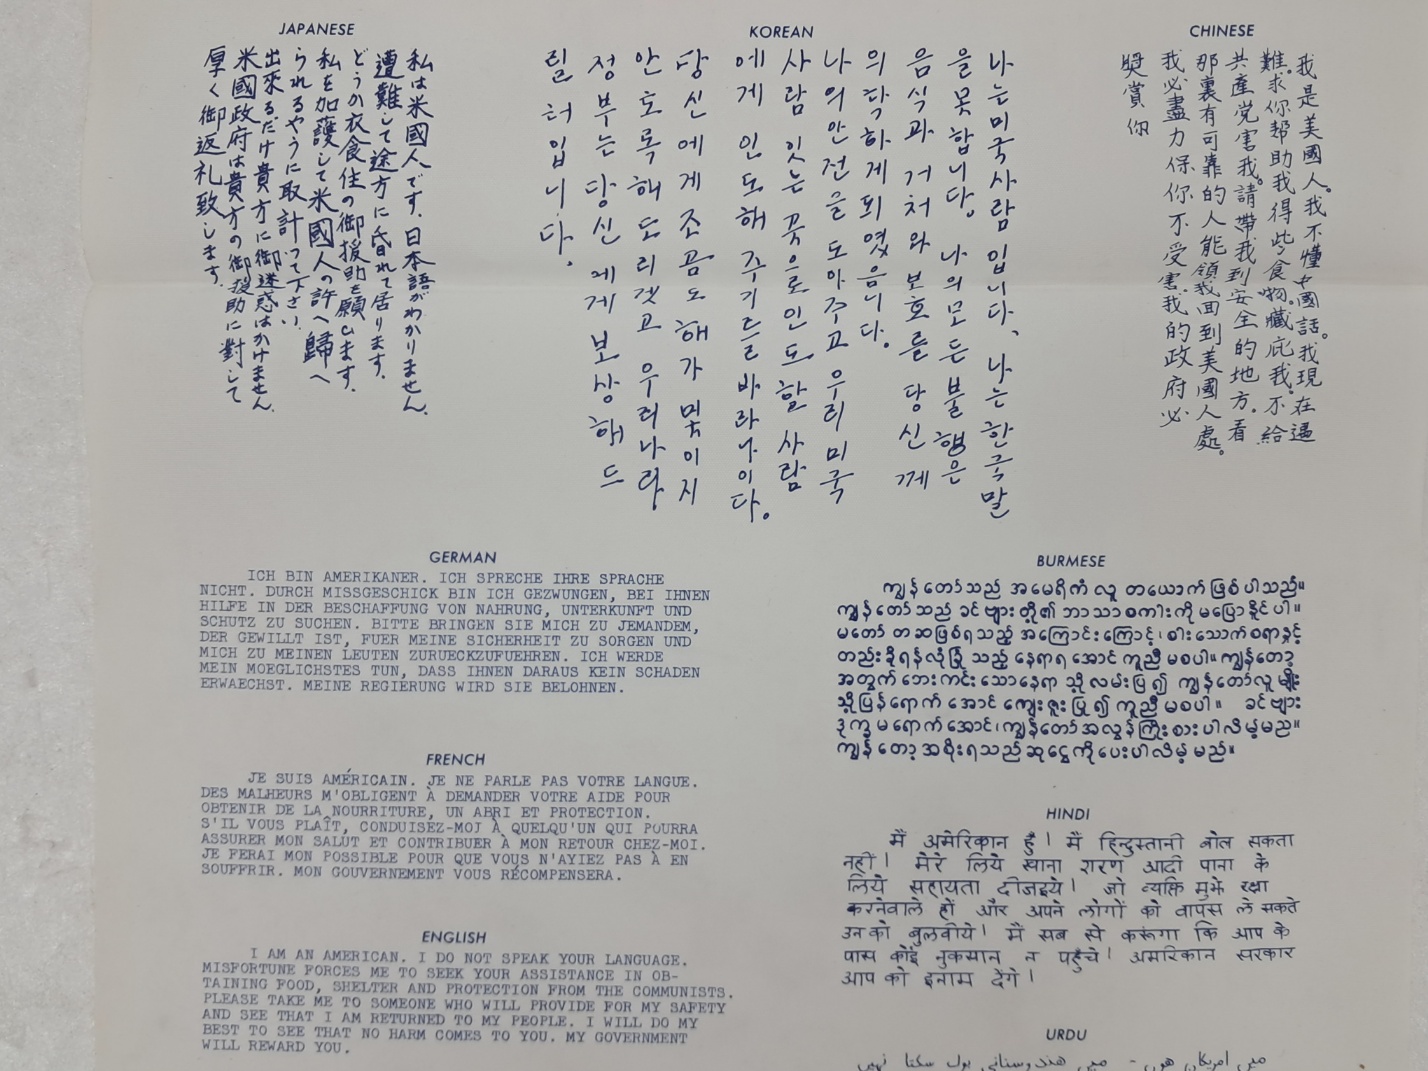 JAPANESE
私は米國人です.日本語がわかりません.
遭難して途方に昏れて居ります.
どうか衣食住の御援助を願ひます.
私を加護して米國人の許へ歸へ
られるやうに取計つて下さい.
出來るだけ貴方に御迷惑はかけません.
米國政府は貴方の御援助に對して
厚く御返礼致します.
KOREAN
나는미국사람입니다、나는한국말
을못합니다。나의모든불행은
음식과거처와보호를당신께
의탁하게되였읍니다。
나의안전을도아주고우리미국
사람잇는곳으로인도할사람
에게인도해주기를바라나이다。
당신에게조곰도해가밋치지
안토록해드리겟고우리나라
정부는당신에게보상해드
릴터입니다。
CHINESE
我是美國人。我不懂中國話。我現在遇
難。求你帮助我得些食物。藏庇我。不給
共產党害我。請帶我到安全的地方。看
那裏有可靠的人能領我回到美國人處。
我必盡力保你不受害。我的政府必
獎賞你
GERMAN
ICH BIN AMERIKANER. ICH SPRECHE IHRE SPRACHE
NICHT. DURCH MISSGESCHICK BIN ICH GEZWUNGEN, BEI IHNEN
HILFE IN DER BESCHAFFUNG VON NAHRUNG, UNTERKUNFT UND
SCHUTZ ZU SUCHEN. BITTE BRINGEN SIE MICH ZU JEMANDEM,
DER GEWILLT IST, FUER MEINE SICHERHEIT ZU SORGEN UND
MICH ZU MEINEN LEUTEN ZURUECKZUFUEHREN. ICH WERDE
MEIN MOEGLICHSTES TUN, DASS IHNEN DARAUS KEIN SCHADEN
ERWAECHST. MEINE REGIERUNG WIRD SIE BELOHNEN.
FRENCH
JE SUIS AMÉRICAIN. JE NE PARLE PAS VOTRE LANGUE.
DES MALHEURS M'OBLIGENT À DEMANDER VOTRE AIDE POUR
OBTENIR DE LA NOURRITURE, UN ABRI ET PROTECTION.
S'IL VOUS PLAÎT, CONDUISEZ-MOI À QUELQU'UN QUI POURRA
ASSURER MON SALUT ET CONTRIBUER À MON RETOUR CHEZ-MOI.
JE FERAI MON POSSIBLE POUR QUE VOUS N'AYIEZ PAS À EN
SOUFFRIR. MON GOUVERNEMENT VOUS RÉCOMPENSERA.
ENGLISH
I AM AN AMERICAN. I DO NOT SPEAK YOUR LANGUAGE.
MISFORTUNE FORCES ME TO SEEK YOUR ASSISTANCE IN OB-
TAINING FOOD, SHELTER AND PROTECTION FROM THE COMMUNISTS.
PLEASE TAKE ME TO SOMEONE WHO WILL PROVIDE FOR MY SAFETY
AND SEE THAT I AM RETURNED TO MY PEOPLE. I WILL DO MY
BEST TO SEE THAT NO HARM COMES TO YOU. MY GOVERNMENT
WILL REWARD YOU.
BURMESE
ကျွန်တော်သည် အမေရိကံ လူ တယောက် ဖြစ်ပါသည်။
ကျွန်တော်သည် ခင်ဗျားတို့၏ ဘာသာစကါးကို မပြောနိုင်ပါ။
မတော် တဆဖြစ်ရသည့် အကြောင်းကြောင့်၊ စါးသောက်စရာနှင့်
တည်းခိုရန်လုံခြုံ သည့် နေရာရအောင် ကူညီ မစပါ။ ကျွန်တော့်
အတွက် ဘေးကင်း သောနေရာ သို့ လမ်းပြ၍ ကျွန်တော်လူမျိုး
သို့ပြန်ရောက် အောင် ကျေးဇူးပြု၍ ကူညီ မစပါ။ ခင်ဗျား
ဒုက္ခ မရောက်အောင်၊ ကျွန်တော်အလွန်ကြိုးစားပါလိမ့်မည်။
ကျွန်တော့်အစိုးရသည်ဆုငွေကိုပေးပါလိမ့်မည်။
HINDI
मैं अमेरिकान हुँ। मैं हिन्दुस्तानी बोल सकता
नहीं। मेरे लिये खाना शरण आदी पाना के
लिये सहायता दीजइये। जो व्यक्ति मुझे रक्षा
करनेवाले हों और अपने लोगों को वापस ले सकते
उनको बुलवीये। मैं सब से करूंगा कि आप के
पास कोई नुकसान न पहुँचे। अमरिकान सरकार
आप को इनाम देंगे।
URDU
میں امریکان ہوں - میں ہندوستانی بول سکتا نہیں